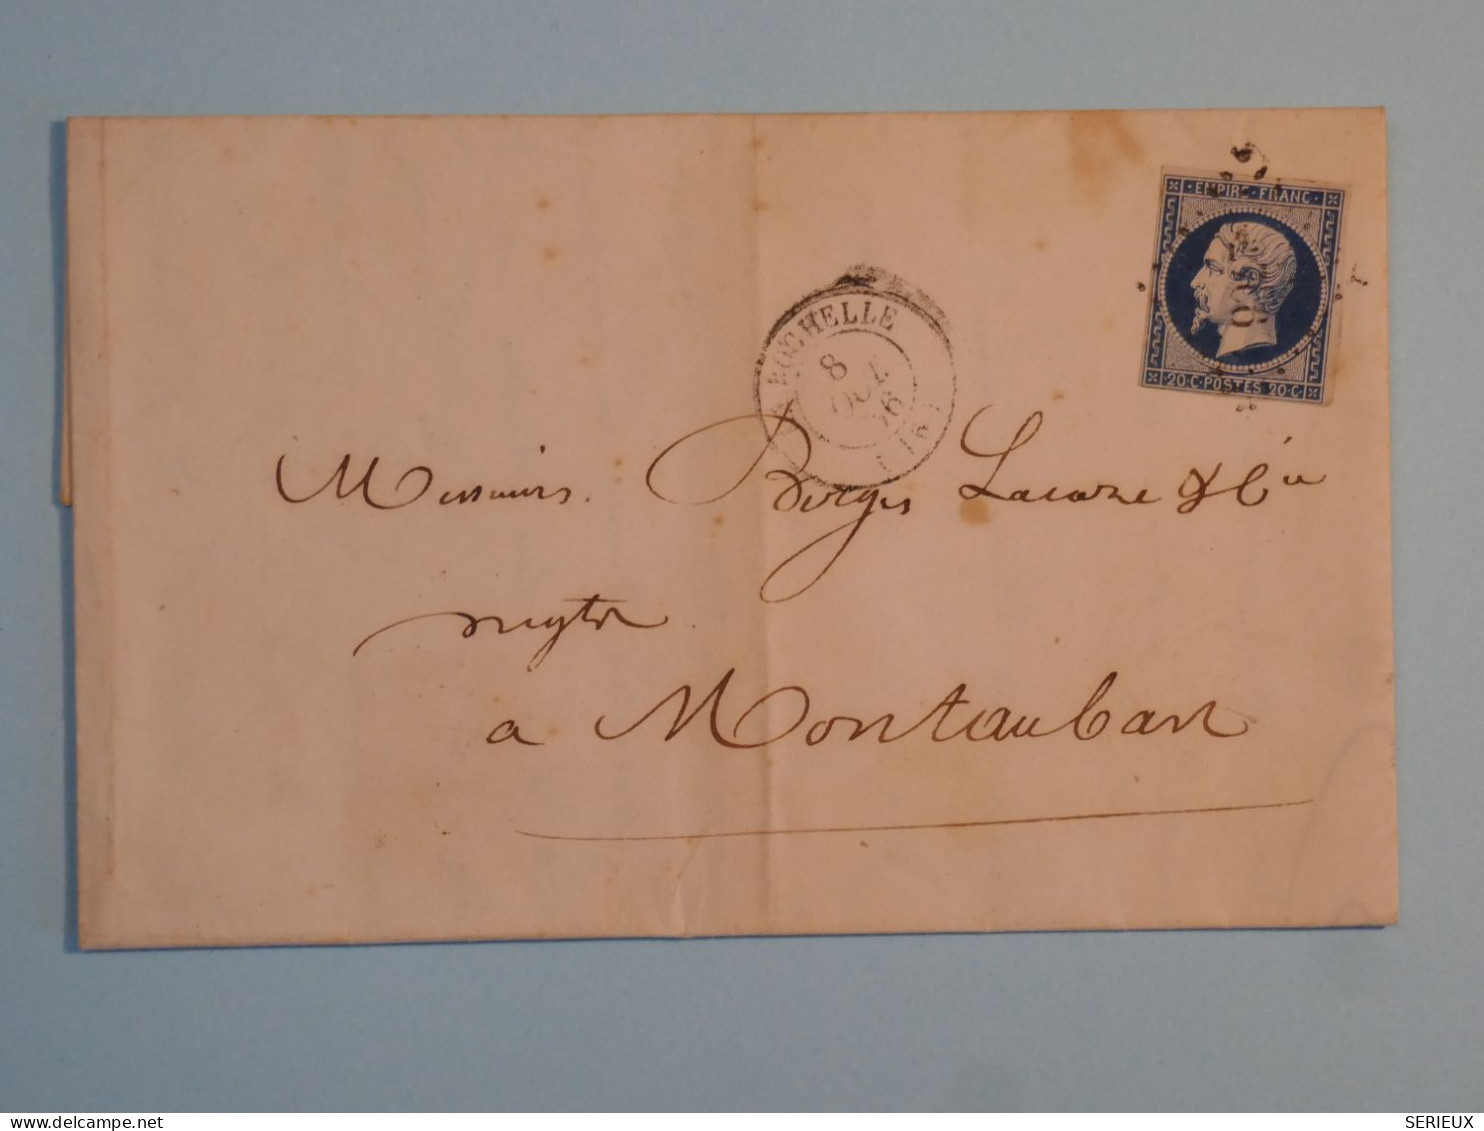 EMPIRE · FRANC ·
20·C·POSTES 20·C·
LA ROCHELLE
8
56
(16)
Messieurs. Berges Lacaze & Cie
negts
a Montauban
www.delcampe.net
SERIEUX